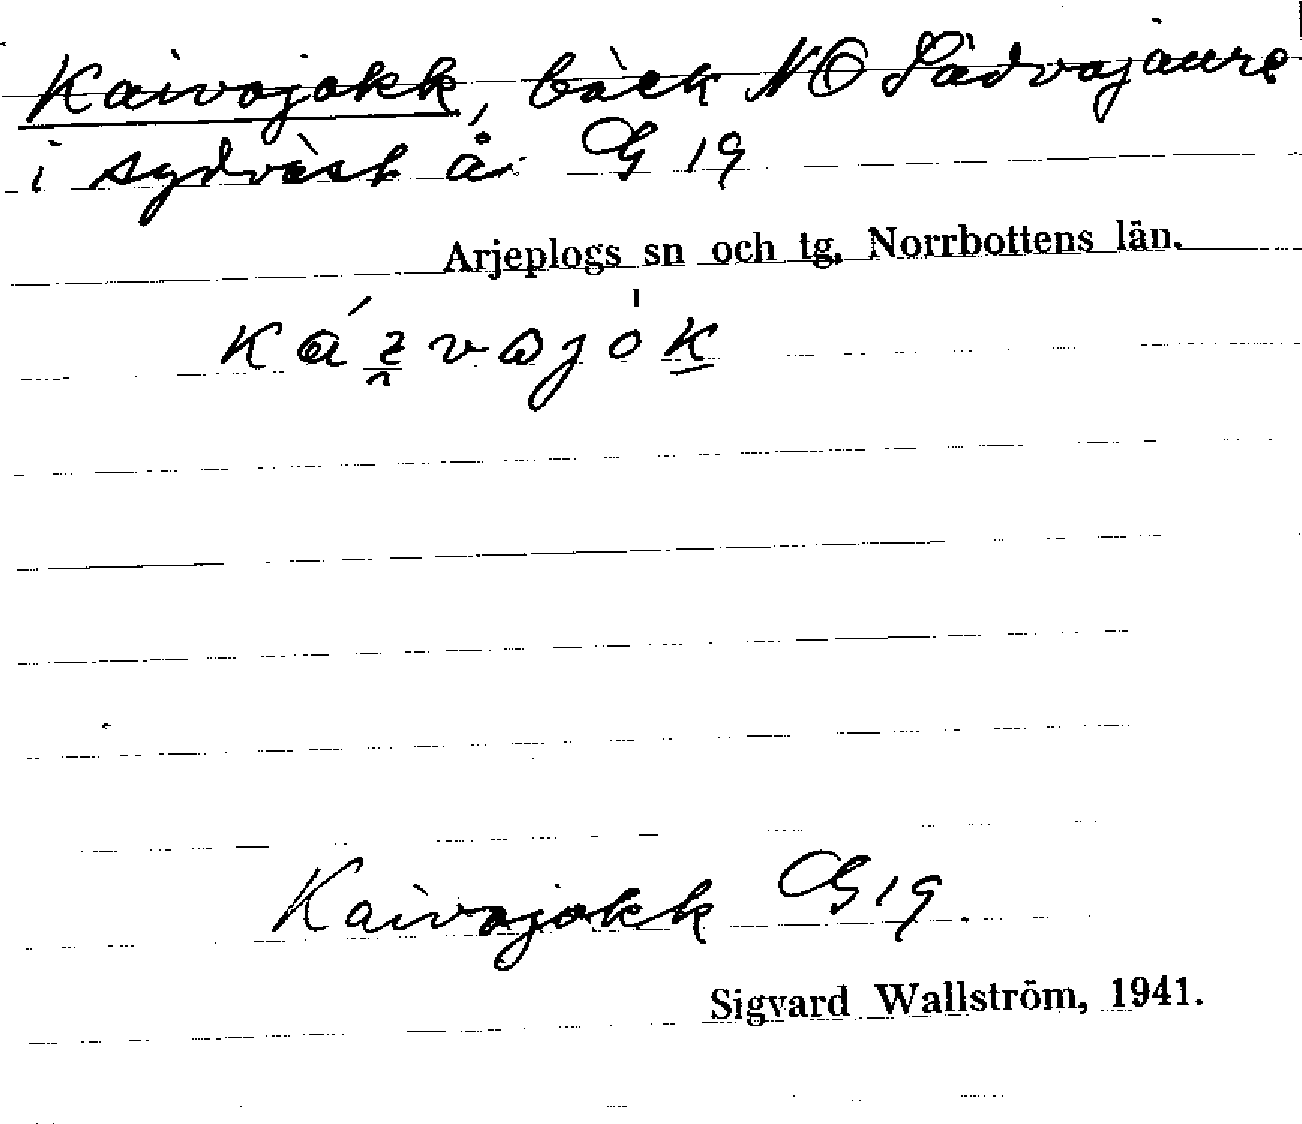 Kaivojokk, bäck NO Sädvajaure
i sydväst å G 19
Arjeplogs sn och tg, Norrbottens län.
Kaivojokk G 19.
Sigvard Wallström, 1941.